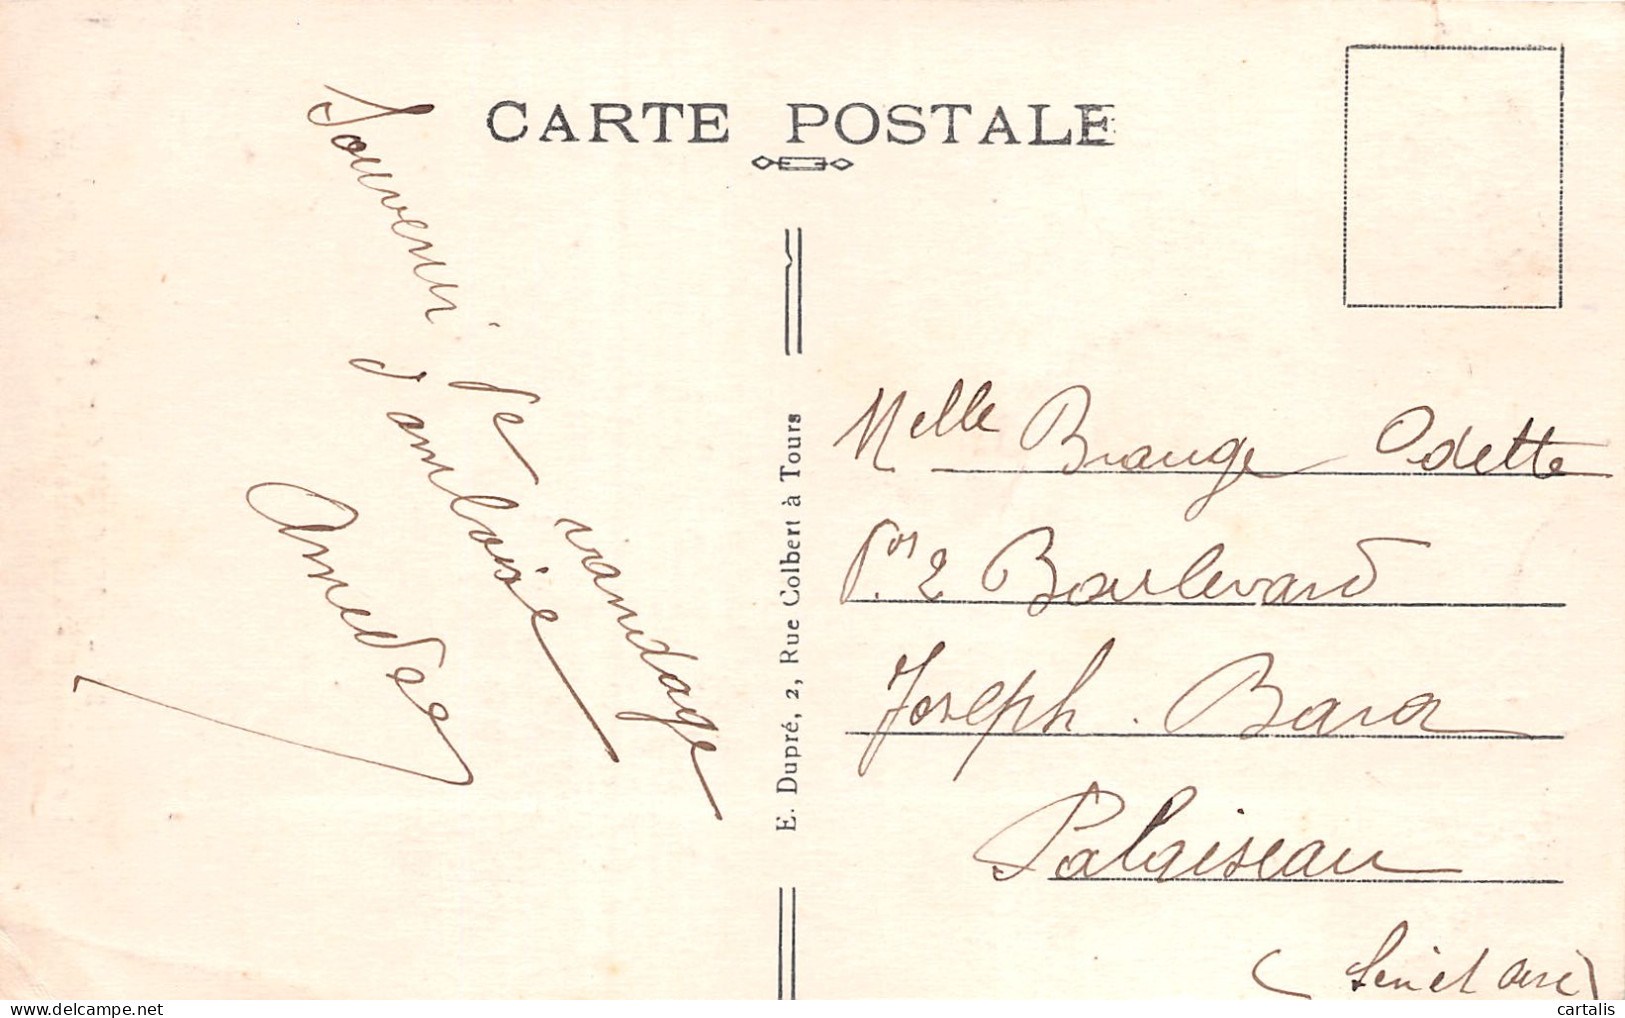 CARTE POSTALE
Souvenir de
d'amboise
Amedee
E. Dupré, 2, Rue Colbert à Tours
Melle Brange Odette
2 Boulevard
Joseph Bara
Palaiseau
(Sein et oise)
cartalis